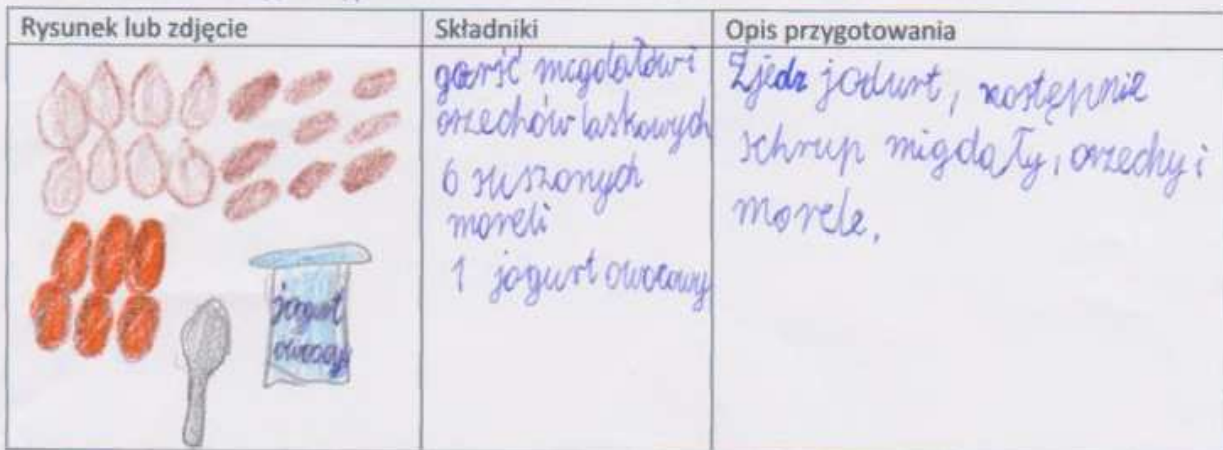 Rysunek lub zdjęcie
Składniki
Opis przygotowania
garść migdałów i
orzechów laskowych
6 suszonych
moreli
1 jogurt owocowy
Zjedz jodurt, następnie
schrup migdały, orzechy i
morele.
jogurt
owocowy